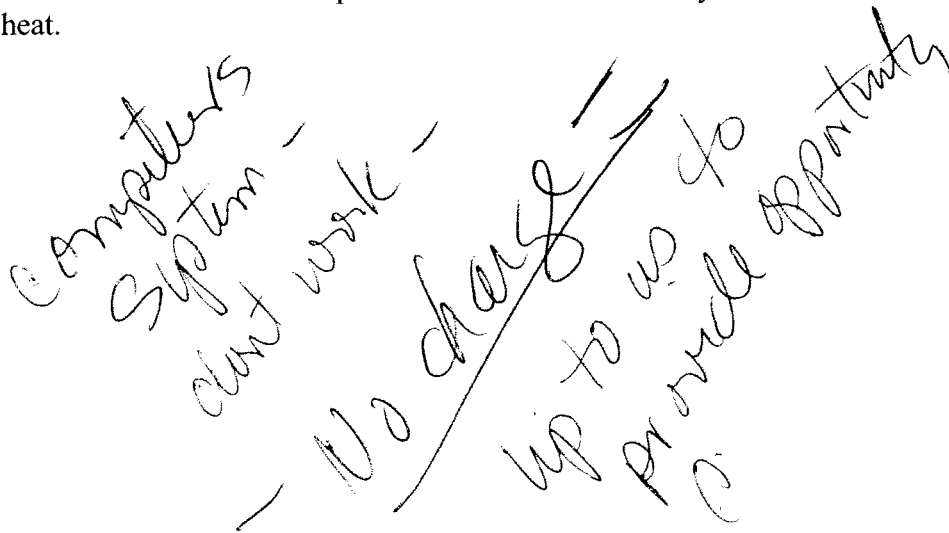 heat.
computers
System -
dont work -
- No charge!!
up to us to
provide opportunity